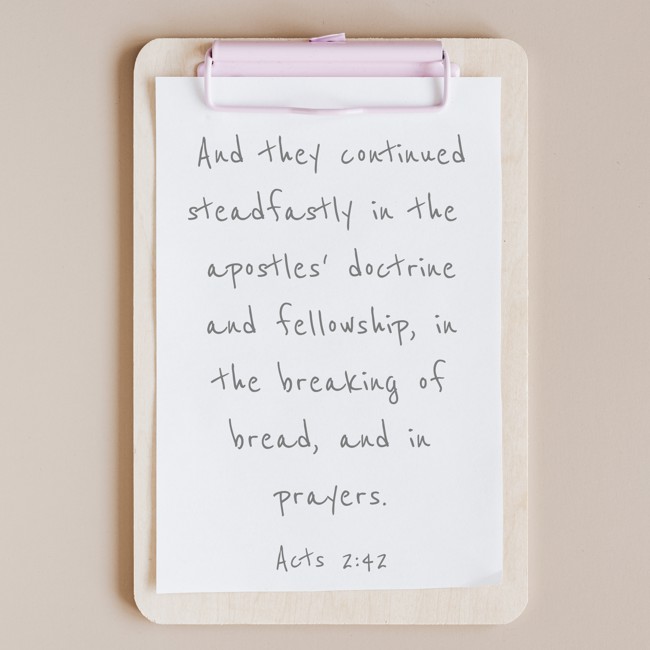 And they continued
steadfastly in the
apostles' doctrine
and fellowship, in
the breaking of
bread, and in
prayers.
Acts 2:42